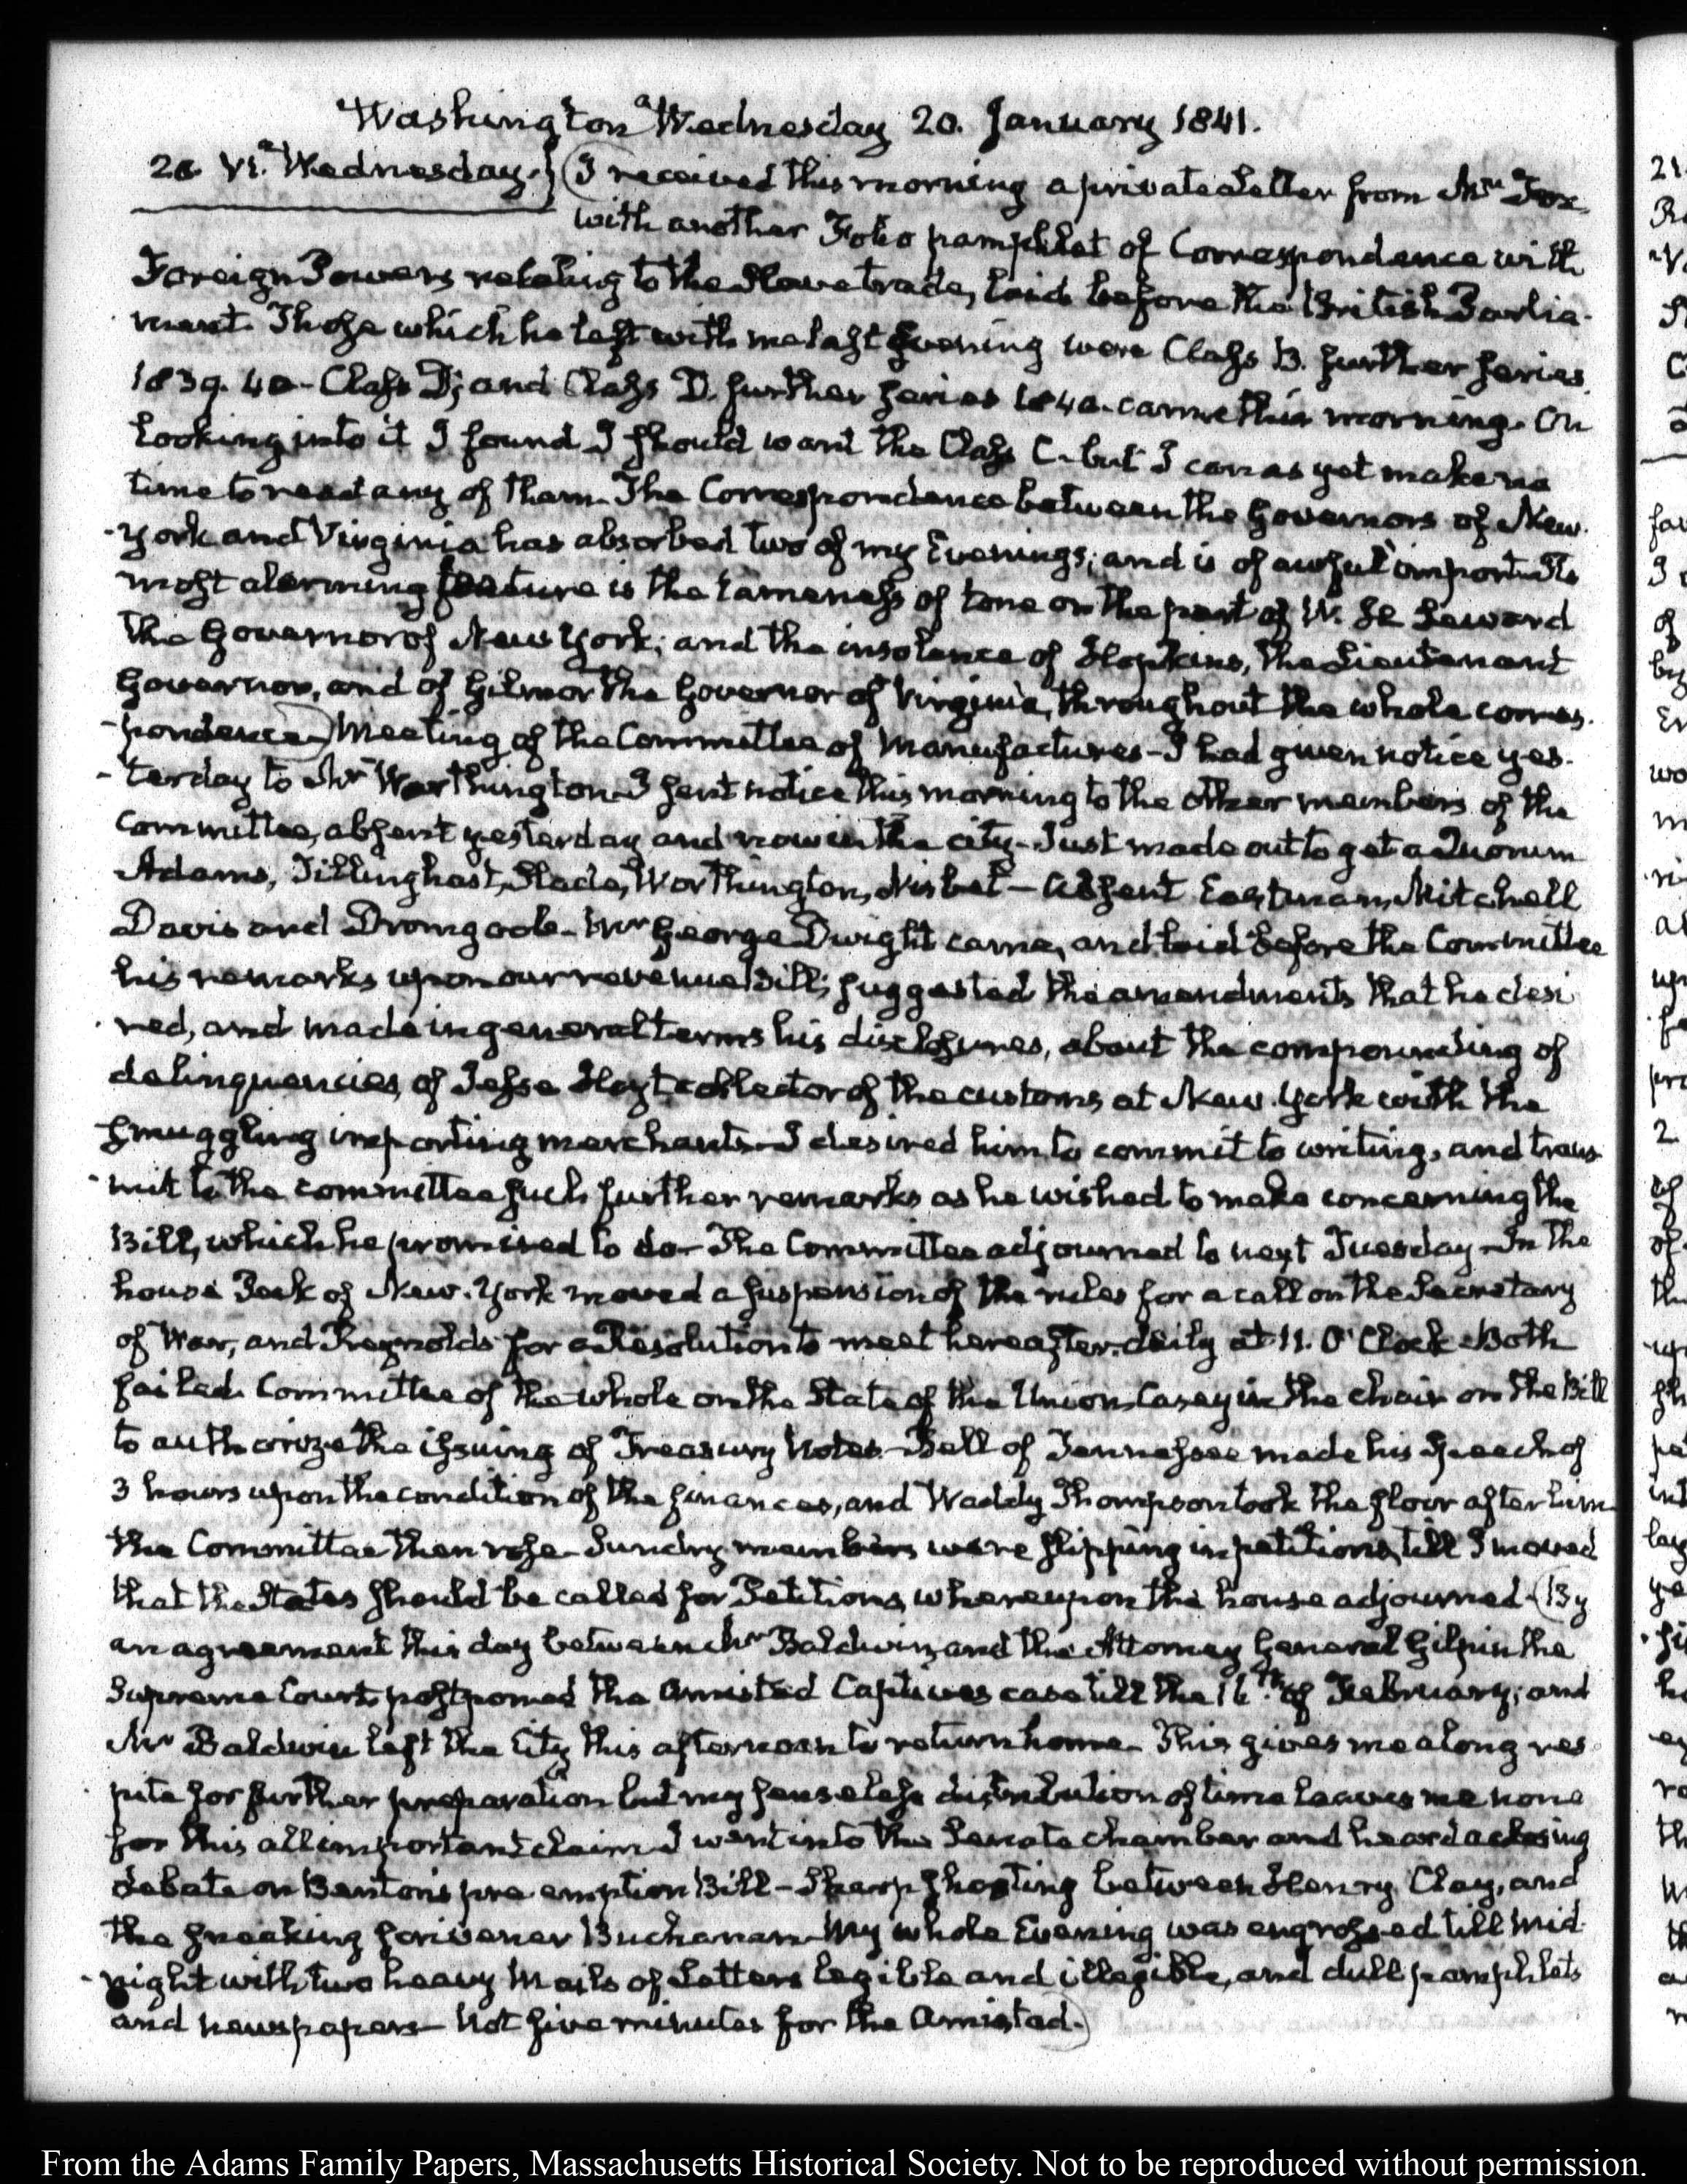 Washington Wednesday 20. January 1841.
20. VI. Wednesday.} I received this morning a private Letter from Mr Fox
with another Folio pamphlet of Correspondence with
Foreign Powers relating to the Slave trade, laid before the British Parlia-
ment. Those which he left with me last Evening were Class B. further series
1839. 40 - Class D; and Class D. further series 1840. came this morning. On
looking into it I found I should want the Class C - but I can as yet make no
time to read any of them. The Correspondence between the Governors of New-
York and Virginia has absorbed two of my Evenings; and is of awful import. Its
most alarming feature is the tameness of tone on the part of W. H. Seward
the Governor of New York; and the insolence of Hopkins, the Lieutenant
Governor, and of Gilmer the Governor of Virginia, throughout the whole corres-
-pondence. Meeting of the Committee of Manufactures - I had given notice yes-
-terday to Mr Worthington. I sent notice this morning to the other members of the
Committee, absent yesterday and now in the city - Just made out to get a Quorum
Adams, Tillinghast, Slade, Worthington, Nisbet - Absent Eastman, Mitchell
Davis and Dromgoole - Mr George Dwight came, and laid before the Committee
his remarks upon our revenue Bill; suggested the amendments that he desi
red, and made in general terms his disclosures, about the compounding of
delinquencies, of Jesse Hoyt collector of the customs at New-York with the
smuggling importing merchants - I desired him to commit to writing, and trans
mit to the committee such further remarks as he wished to make concerning the
Bill, which he promised to do - The Committee adjourned to next Tuesday - In the
house Peck of New-York moved a suspension of the rules for a call on the Secretary
of War, and Reynolds for a Resolution to meet hereafter daily at 11. O'Clock - Both
failed. Committee of the whole on the State of the Union Casey in the chair on the Bill
to authorize the issuing of Treasury Notes - Bell of Tennessee made his Speech of
3 hours upon the condition of the finances, and Waddy Thompson took the floor after him
the Committee then rose - Sundry members were slipping in petitions, till I moved
that the States should be called for Petitions, whereupon the house adjourned - (By
an agreement this day between Mr Baldwin and the Attorney General Gilpin the
Supreme Court postponed the Amistad Captives case till the 16th of February; and
Mr Baldwin left the City this afternoon to return home - This gives me a long res
pite for further preparation but my senseless distribution of time leaves me none
for this all important claim. I went into the Senate chamber and heard a closing
debate on Benton's pre emption Bill - Sharp shooting between Henry Clay, and
the sneaking scrivener Buchanan - My whole Evening was engrossed till Mid
-night with two heavy Mails of Letters legible and illegible, and dull pamphlets
and newspapers - Not five minutes for the Amistad.)
From the Adams Family Papers, Massachusetts Historical Society. Not to be reproduced without permission.